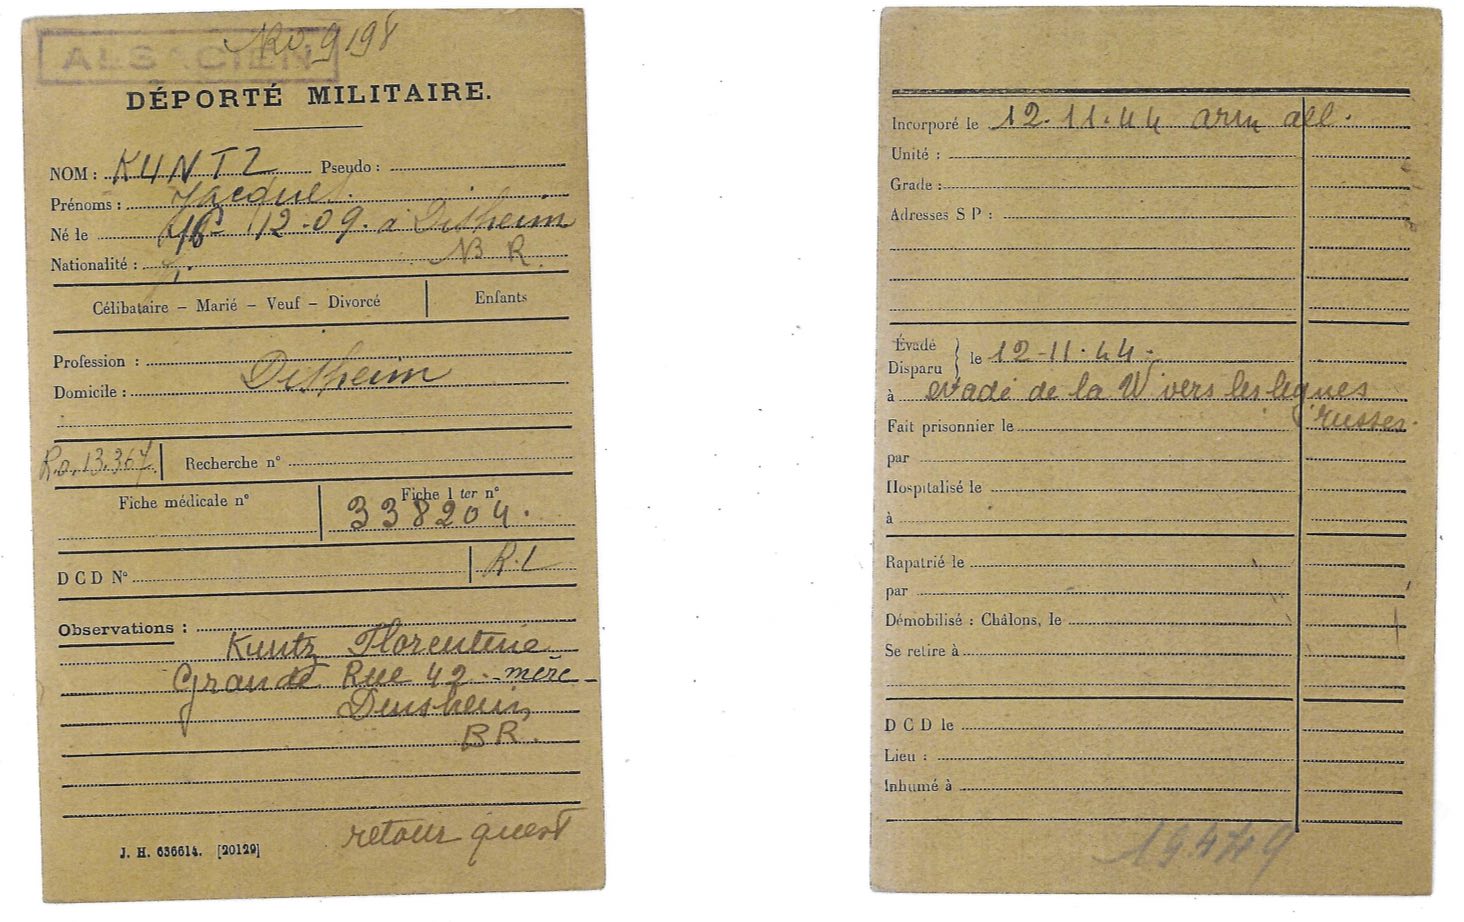 ALSACIEN
Ro 9198
DÉPORTÉ MILITAIRE.
NOM : KUNTZ Pseudo :
Prénoms : Jacques
Né le 12-09. à
Nationalité : B R.
Célibataire – Marié – Veuf – Divorcé Enfants
Profession :
Domicile :
Ro. 13.367 Recherche n°
Fiche médicale n° Fiche 1 ter n°
338204.
D C D N° R.L
Observations :
Kuntz Florentine
Grande Rue 42 - mère -
BR.
J. H. 636614. [20129]
retour quest
Incorporé le 12.11.44 arm all.
Unité :
Grade :
Adresses S P :
Évadé
Disparu } le 12-11.44.
à evadé de la W vers les lignes
russes.
Fait prisonnier le
par
Hospitalisé le
à
Rapatrié le
par
Démobilisé : Châlons, le
Se retire à
D C D le
Lieu :
Inhumé à